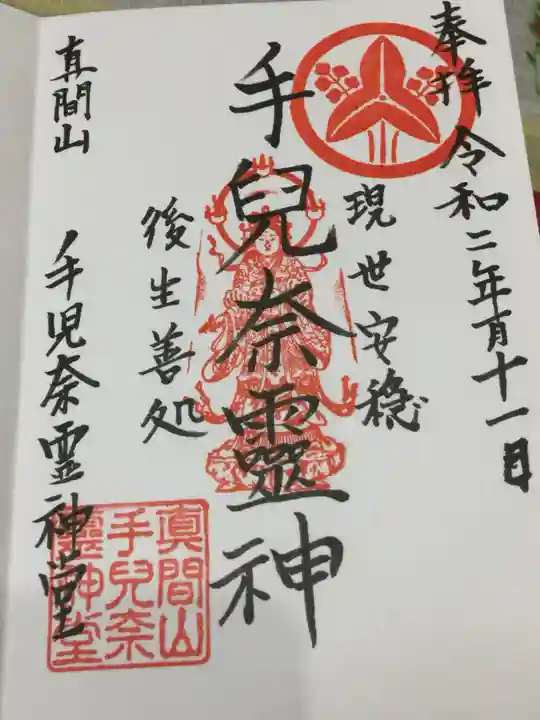 奉拝 令和二年百十一日
現世安穏
手兒奈靈神
後生善処
真間山 手児奈霊神堂
真間山
手兒奈
靈神堂